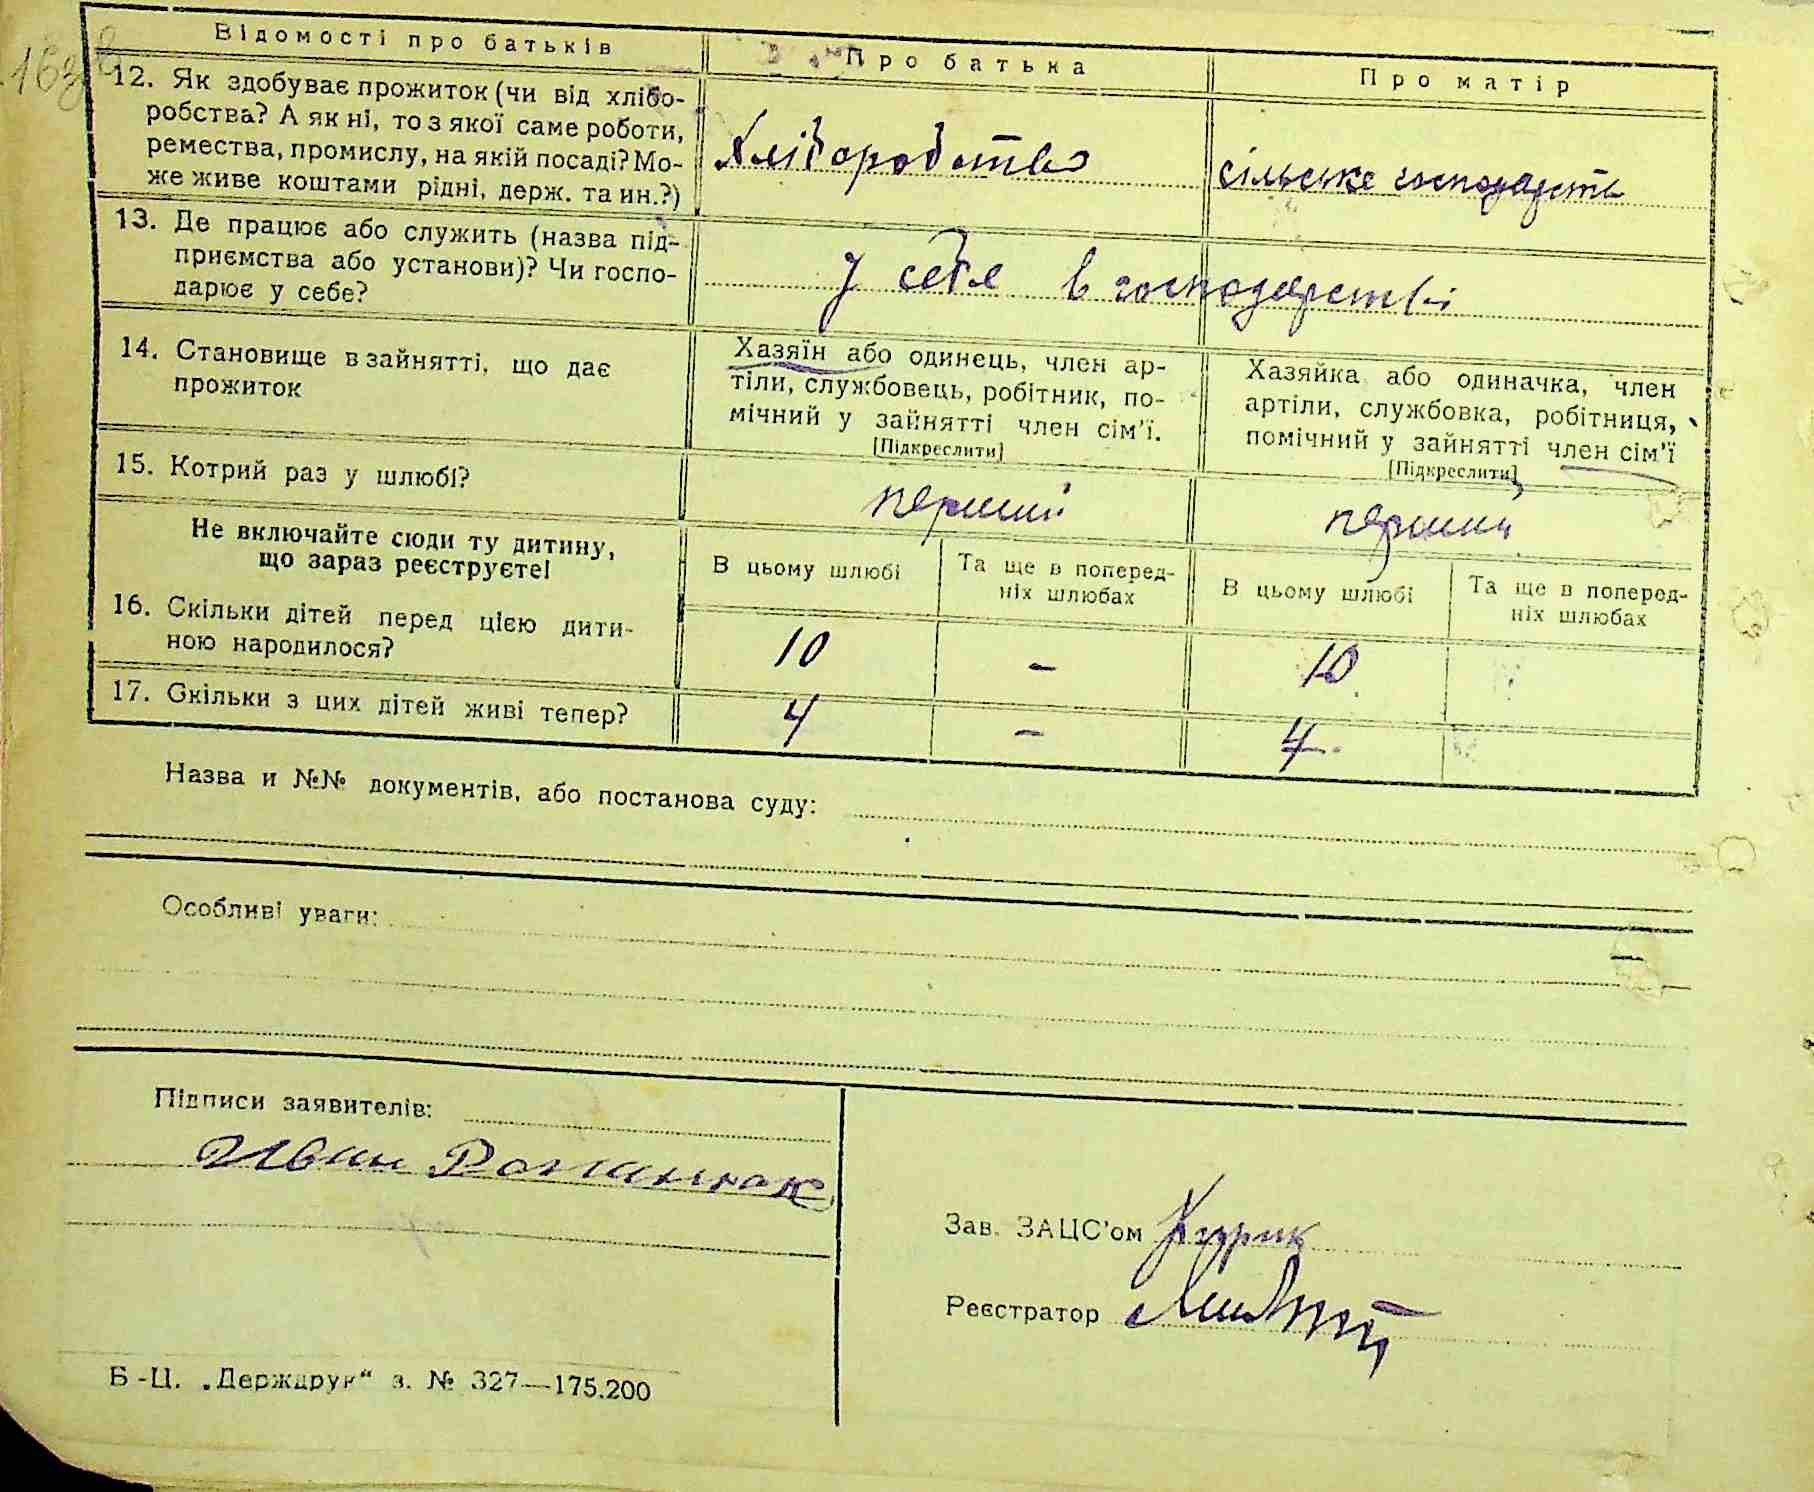 Відомості про батьків
Про батька
Про матір
12. Як здобуває прожиток (чи від хлібо-
робства? А як ні, то з якої саме роботи,
ремества, промислу, на якій посаді? Мо-
же живе коштами рідні, держ. та ин.?)
Хліборобство
сільське господарств
13. Де працює або служить (назва під-
приємства або установи)? Чи госпо-
дарює у себе?
у себе в господарстві
14. Становище в зайнятті, що дає
прожиток
Хазяїн або одинець, член ар-
тіли, службовець, робітник, по-
мічний у зайнятті член сім'ї.
[Підкреслити]
Хазяйка або одиначка, член
артіли, службовка, робітниця,
помічний у зайнятті член сім'ї
[Підкреслити]
15. Котрий раз у шлюбі?
перший
перший
Не включайте сюди ту дитину,
що зараз реєструєте!
В цьому шлюбі
Та ще в поперед-
ніх шлюбах
В цьому шлюбі
Та ще в поперед-
ніх шлюбах
16. Скільки дітей перед цією дити-
ною народилося?
10 – 10
17. Скільки з цих дітей живі тепер?
4 – 4
Назва и №№ документів, або постанова суду:
Особливі уваги:
Підписи заявителів:
Иван Романюк
Зав. ЗАЦС'ом
Реєстратор
Б-Ц. „Держдрук“ з. № 327—175.200